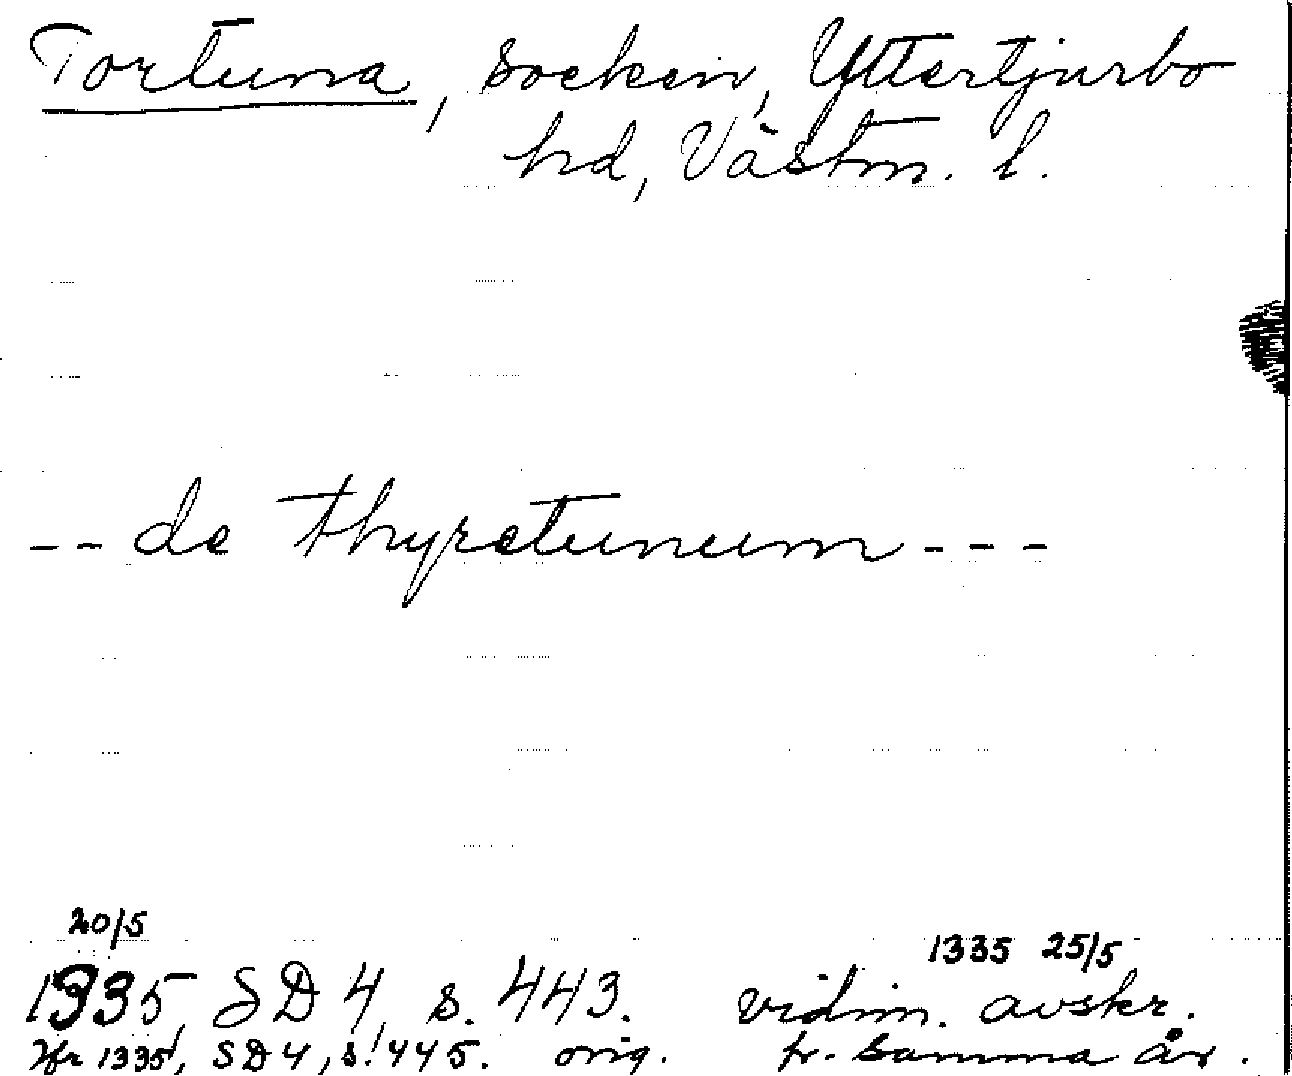 Tortuna, socken, Yttertjurbo
hd, Västm. l.
-- de thyretunum ---
20/5
1335 25/5
1335, SD 4, s. 443. vidim. avskr.
Jfr 1335, SD 4, s. 445. orig. fr. samma år.